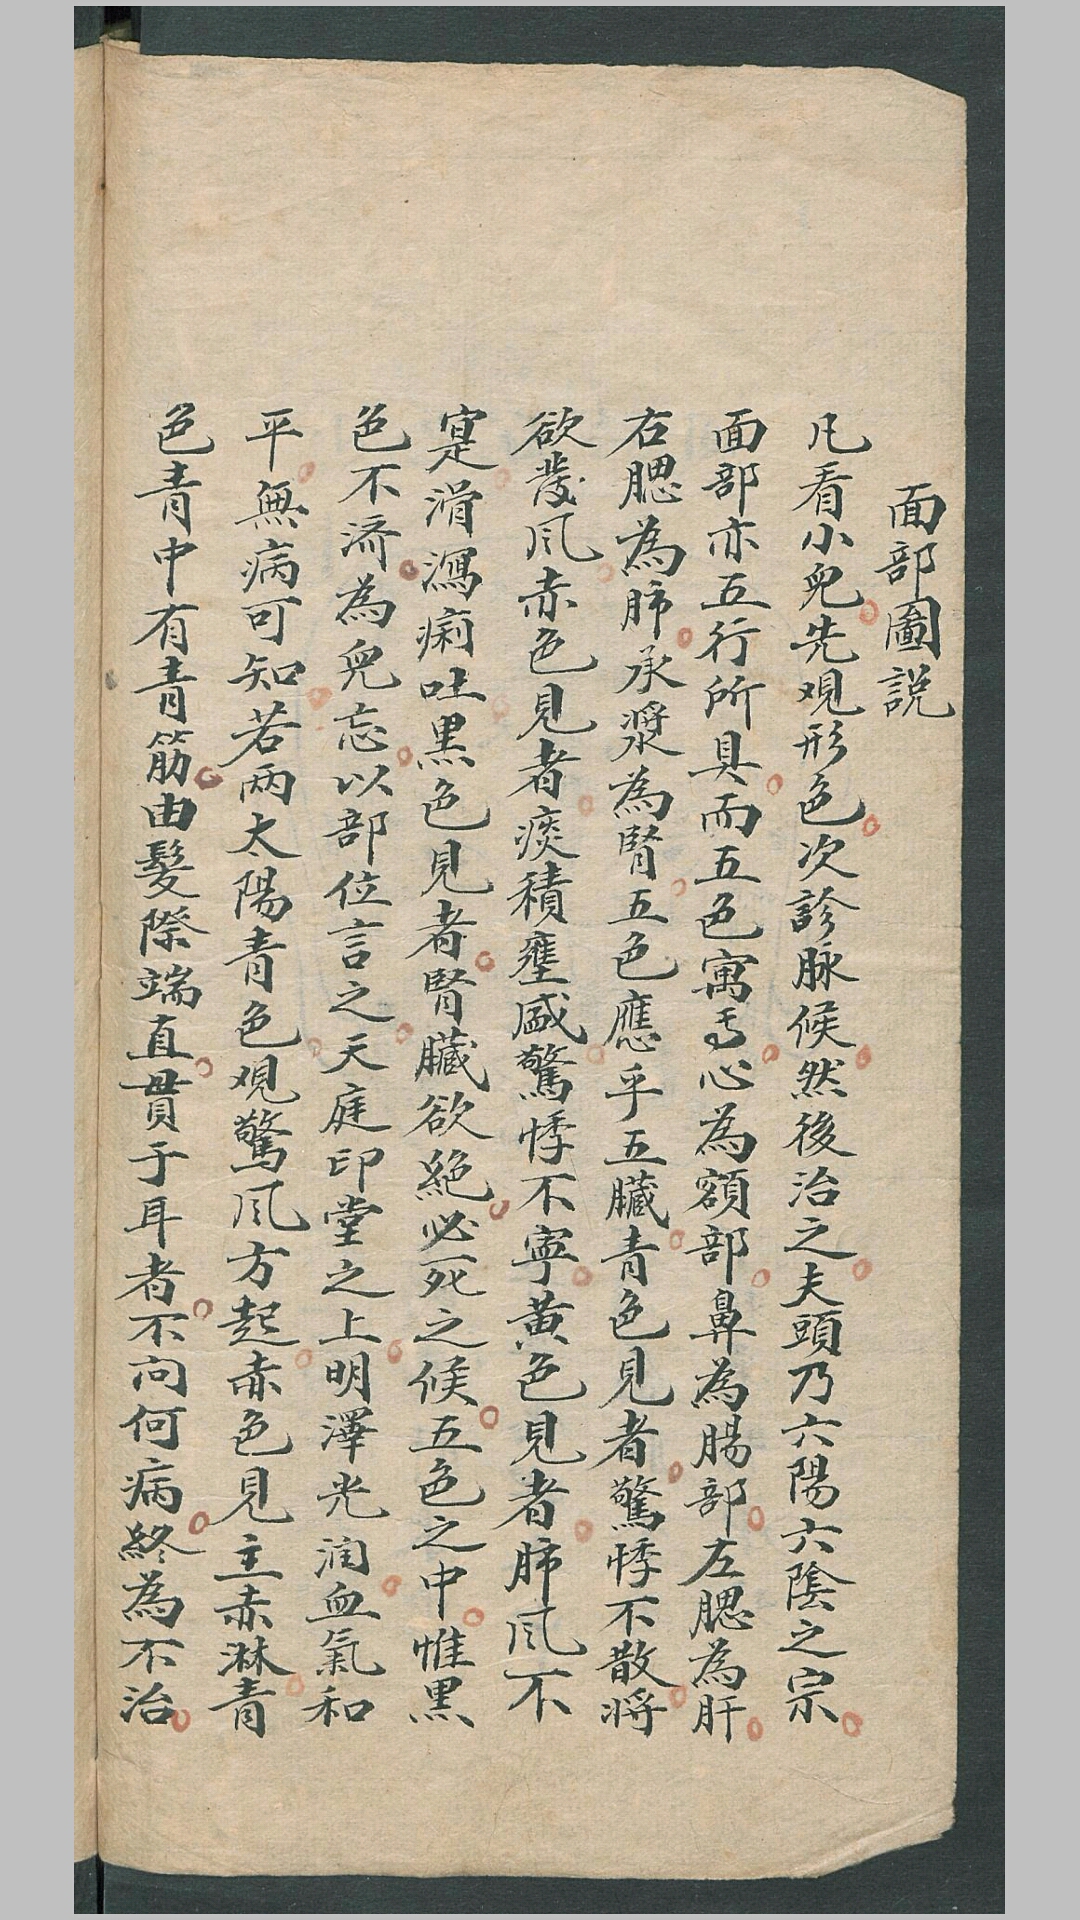 面部圖說
凡看小兒先观形色次診脉候然後治之夫頭乃六陽六陰之宗
面部亦五行所具而五色寓焉心為額部鼻為腸部左腮為肝
右腮為肺承漿為腎五色應乎五臟青色見者驚悸不散将
欲發風赤色見者痰積壅盛驚悸不寧黃色見者肺風不
寔滑瀉痢吐黑色見者腎臟欲絕必死之候五色之中惟黑
色不済為兒忘以部位言之天庭印堂之上明澤光润血氣和
平無病可知若兩太陽青色观驚風方起赤色見主赤淋青
色青中有青筋由髮際端直貫于耳者不问何病終為不治